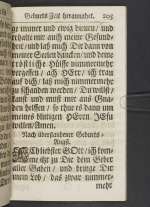 Geburts Zeit herannahet. 203
ge munter und ewig dienen / und
erhalte mir auch meine Gesund-
heit / und laß mich Die dann von
meiner Seelen dancken / und deine
tröstliche Hülffe nimmermehr
vergessen / ach HErr / ich trau
auf dich / laß mich nimmermehr
zu schanden werden / Du wilst /
kanst und must mir aus Gna-
den helffen / so thue es dann um
meines blutigen HErrn JEsu
willen / Amen.
Nach überstandener Geburts-
Angst.
Ach Allerliebster GOtt / ich kom-
me itzt zu Dir dem Geber
aller Gaben / und bringe Dir
ein Lob / das zwar nimmer-
mehr